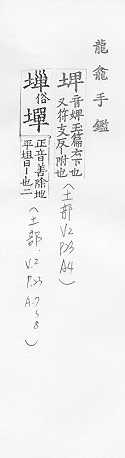 龍龕手鑑
埤 音婢玉篇云下也
又符支反附也
(土部 V2
P.23
A4)
墠俗
墠 正音善除地
平坦曰-也二
(土部. V.2
P.23
A-7~8)